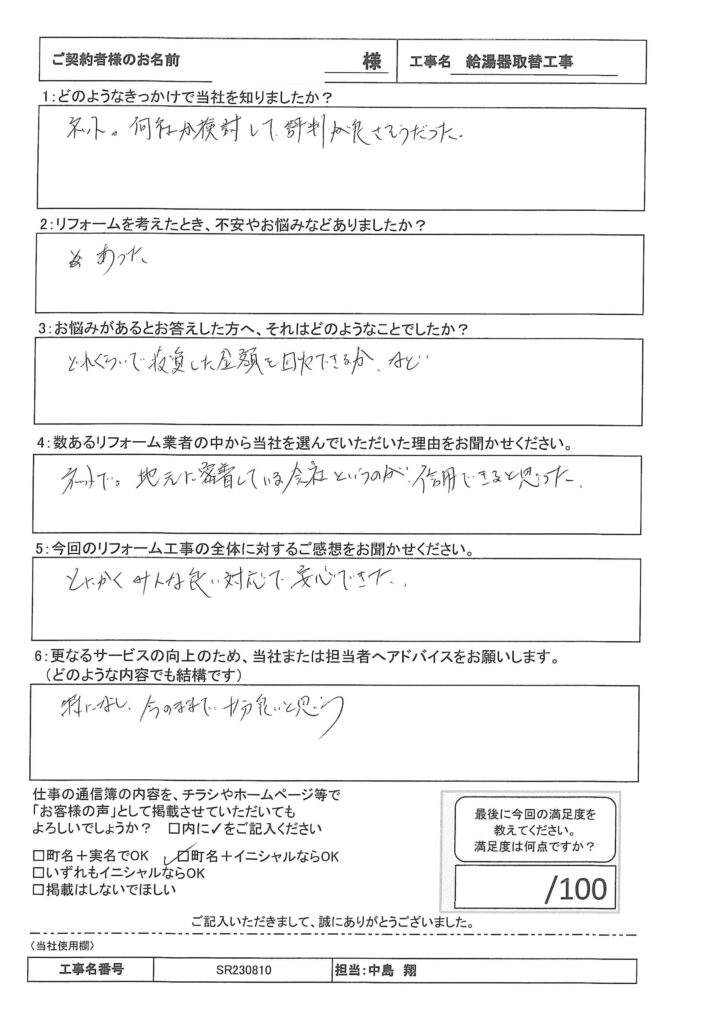 ご契約者様のお名前 様 工事名 給湯器取替工事
1:どのようなきっかけで当社を知りましたか？
ネット。何社か検討して評判が良さそうだった.
2:リフォームを考えたとき、不安やお悩みなどありましたか？
あった、
3:お悩みがあるとお答えした方へ、それはどのようなことでしたか？
どれくらいで投資した金額を回収できるか、など
4:数あるリフォーム業者の中から当社を選んでいただいた理由をお聞かせください。
ネットで。地元に密着している会社というのが、信用できると思った、
5:今回のリフォーム工事の全体に対するご感想をお聞かせください。
とにかくみんな良い対応で安心できた、
6:更なるサービスの向上のため、当社または担当者へアドバイスをお願いします。
（どのような内容でも結構です）
特になし、今のままで十分良いと思う
仕事の通信簿の内容を、チラシやホームページ等で
「お客様の声」として掲載させていただいても
よろしいでしょうか？ □内に✓をご記入ください
□町名＋実名でOK ☑町名＋イニシャルならOK
□いずれもイニシャルならOK
□掲載はしないでほしい
最後に今回の満足度を
教えてください。
満足度は何点ですか？
/100
ご記入いただきまして、誠にありがとうございました。
〈当社使用欄〉
工事名番号 SR230810 担当:中島 翔